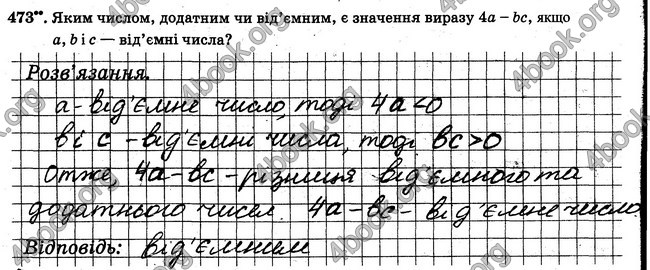 473••. Яким числом, додатним чи від’ємним, є значення виразу 4a – bc, якщо
a, b і c — від’ємні числа?
Розв’язання.
а - від’ємне число, тоді 4а < 0
в і с - від’ємні числа, тоді вс > 0
Отже, 4а - вс - різниця від’ємного та
додатнього чисел. 4а - вс - від’ємне число.
Відповідь: від’ємним
4book.org
4book.org
4book.org
4book.org
4book.org